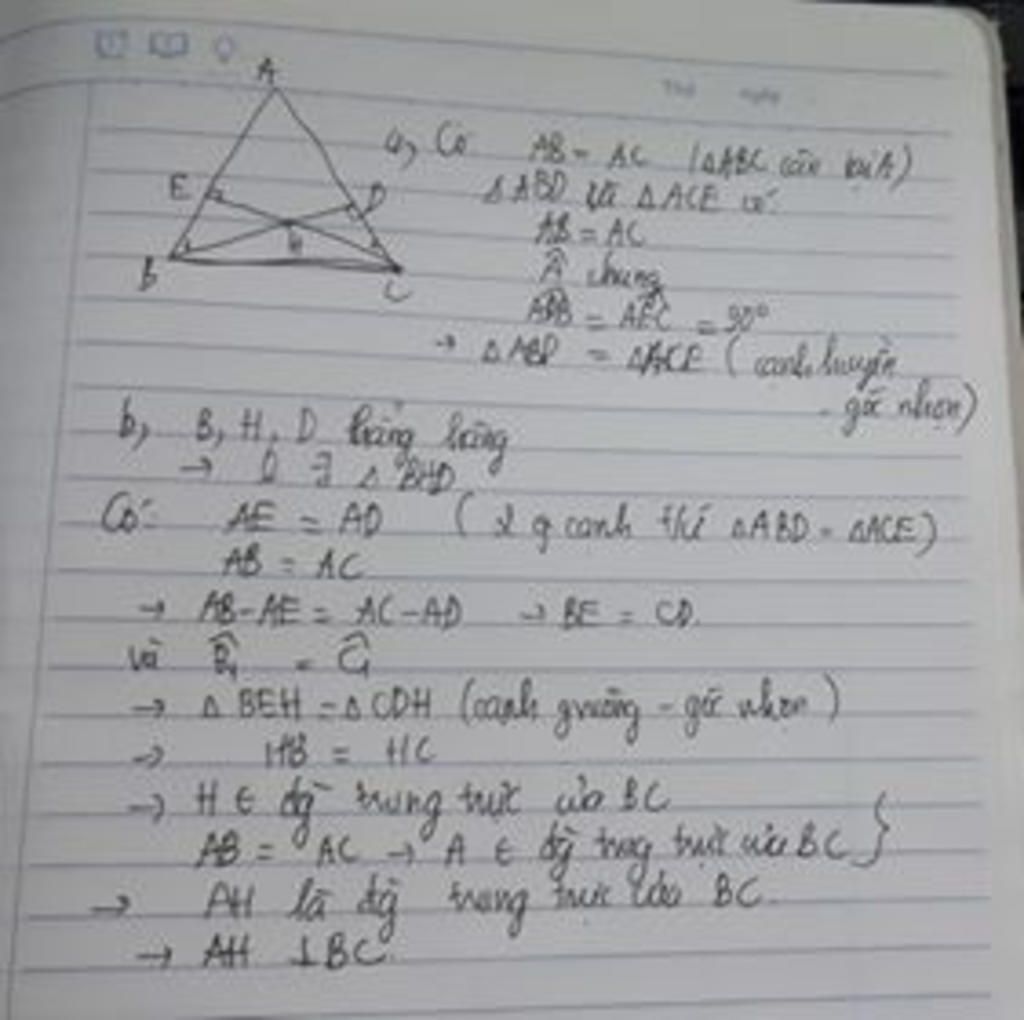 Thứ ngày
A
E
D
H
B
C
a, Có AB = AC (△ABC cân tại A)
△ABD và △ACE có:
AB = AC
Â chung
ADB = AEC = 90°
→ △ABD = △ACE (cạnh huyền
- góc nhọn)
b, B, H, D thẳng hàng
→ ∃ △ BHD
Có: AE = AD ( 2 cạnh △ABD = △ACE)
AB = AC
→ AB-AE = AC-AD → BE = CD.
và B̂₁ = Ĉ₁
→ △ BEH = △ CDH (cạnh gvuông - góc nhọn)
→ HB = HC
→ H ∈ đg trung trực của BC
AB = AC → A ∈ đg trug trực của BC }
→ AH là đg trung trực của BC.
→ AH ⊥ BC.